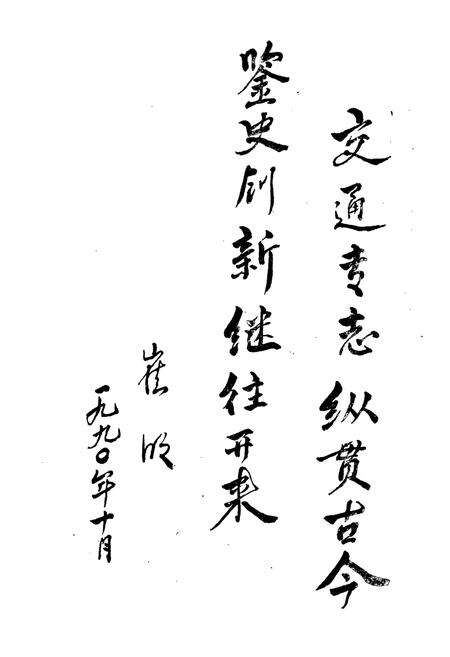 交通专志纵贯古今
鉴史创新继往开来
崔
一九九〇年十月